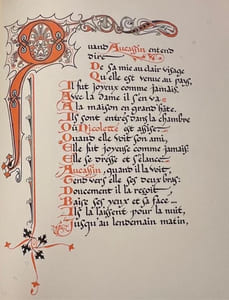 Quand Aucassin entend
dire
De sa mie au clair visage
Qu'elle est venue au pays,
Il fut joyeux comme jamais.
Avec la dame il s'en va
A la maison en grand hâte.
Ils sont entrés dans la chambre
Où Nicolette est assise.
Quand elle voit son ami,
Elle fut joyeuse comme jamais.
Elle se dresse et s'élance.
Aucassin, quand il la voit,
Tend vers elle ses deux bras:
Doucement il la reçoit,
Baise ses yeux et sa face.
Ils la laissent pour la nuit,
Jusqu'au lendemain matin,